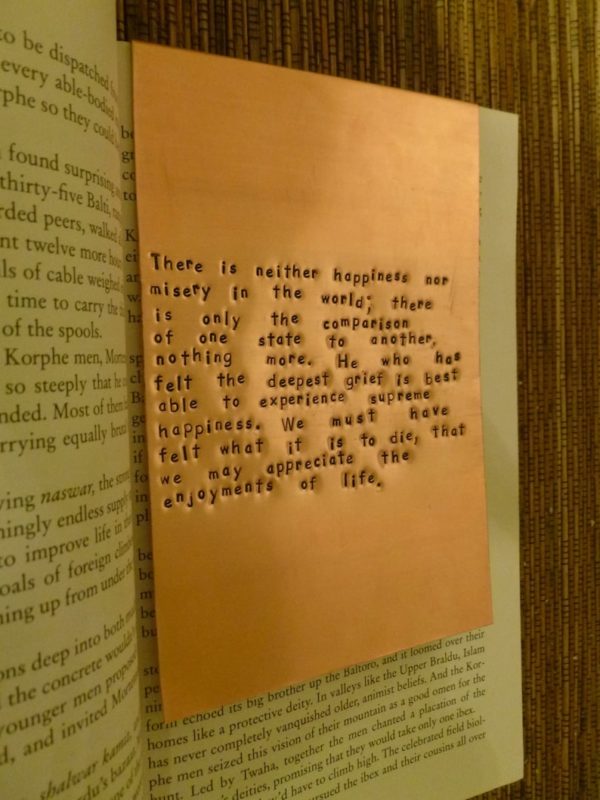 to be dispatched
every able-bodied
rphe so they could
found surprising
thirty-five Balti,
rded peers, walked
nt twelve more
ls of cable weighed
time to carry the
of the spools.
Korphe men,
so steeply that he
nded. Most of them
rrying equally
ying naswar, the
mingly endless
to improve life in
oals of foreign
ning up from under the
ons deep into both
the concrete
younger men
d, and invited
shalwar
There is neither happiness nor
misery in the world; there
is only the comparison
of one state to another,
nothing more. He who has
felt the deepest grief is best
able to experience supreme
happiness. We must have
felt what it is to die, that
we may appreciate the
enjoyments of life.
form echoed its big brother up the Baltoro, and it loomed over their
homes like a protective deity. In valleys like the Upper Braldu, Islam
has never completely vanquished older, animist beliefs. And the Kor-
phe men seized this vision of their mountain as a good omen for the
hunt. Led by Twaha, together the men chanted a placation of the
deities, promising that they would take only one ibex.
have to climb high. The celebrated field biol-
pursued the ibex and their cousins all over